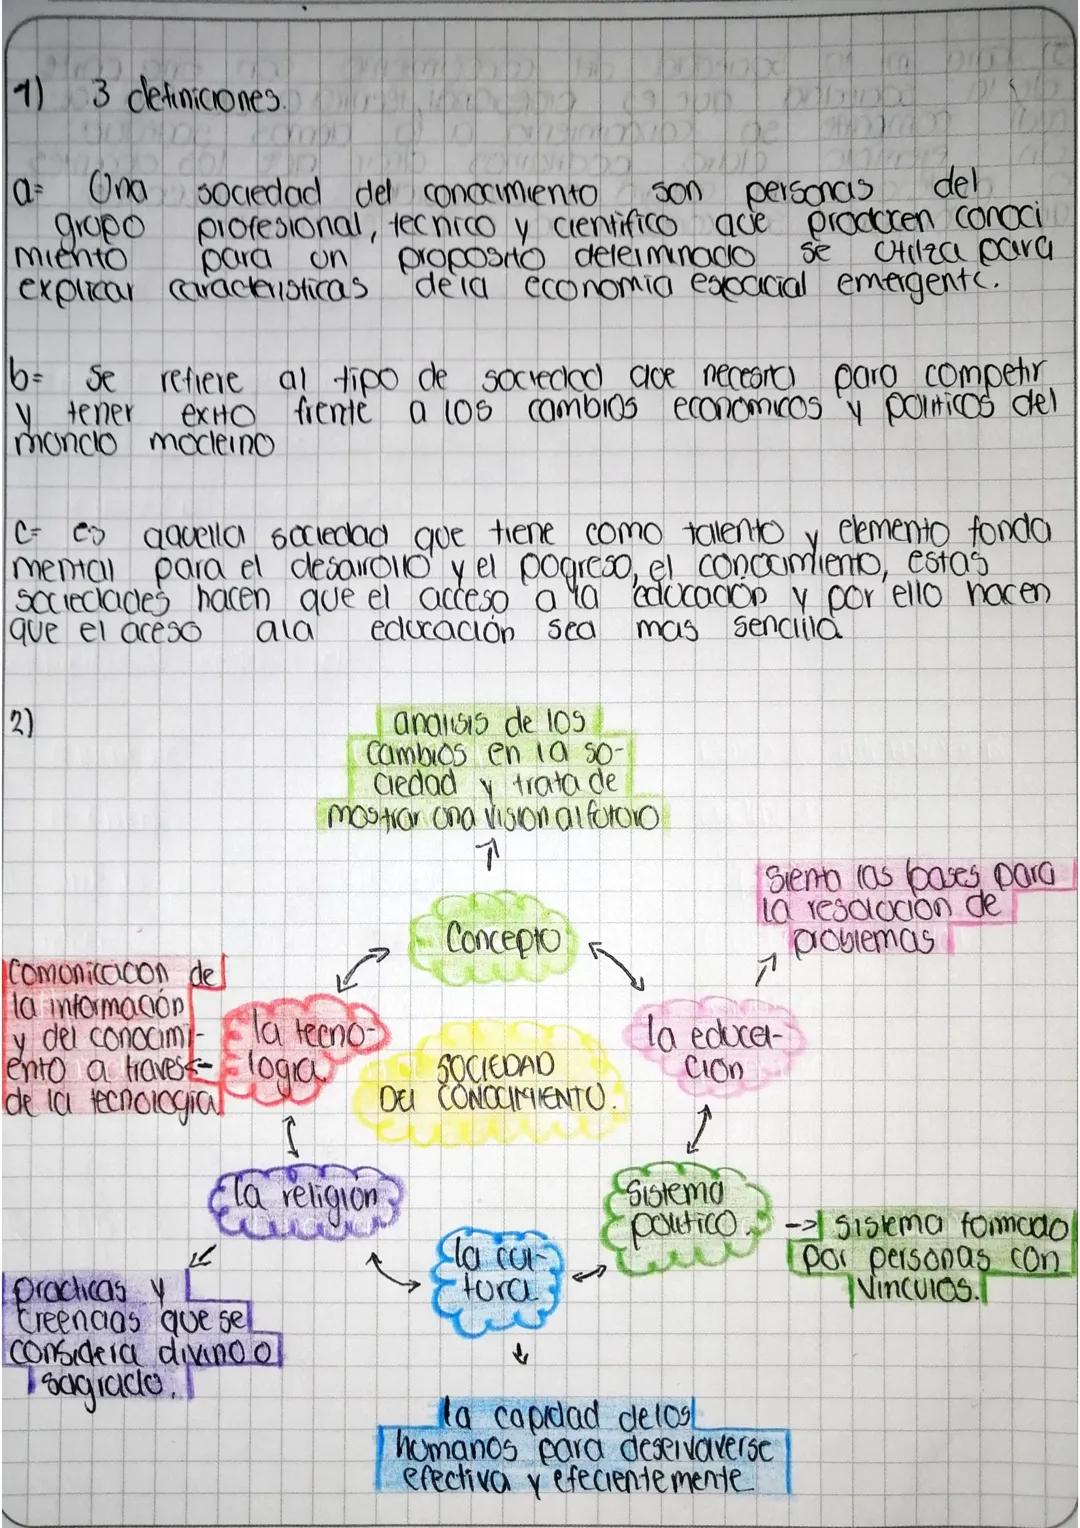 1) 3 definiciones.
a= Una sociedad del conocimiento son personas del
grupo profesional, tecnico y cientifico que producen conoci
miento para un proposito determinado se utiliza para
explicar caracteristicas de la economia espacial emergente.
b= Se refiere al tipo de sociedad que necesita para competir
y tener exito frente a los cambios economicos y politicos del
mundo moderno
c= es aquella sociedad que tiene como talento y elemento funda
mental para el desarrollo y el pogreso, el conocimiento, estas
sociedades hacen que el acceso a la educación y por ello hacen
que el aceso ala educación sea mas sencilla
2)
analisis de los
cambios en la so-
ciedad y trata de
mostrar una vision al futuro
Sienta las bases para
la resolucion de
problemas
Concepto
comunicacion de
la información
y del conocimi-
ento a traves
de la tecnologia
la tecno-
logia.
la educa-
cion
SOCIEDAD
DEL CONOCIMIENTO.
la religion
Sistema
politico.
sistema formado
por personas con
vinculos.
la cul-
tura.
practicas y
creencias que se
considera divino o
sagrado.
la capidad de los
humanos para
efectiva y efecientemente